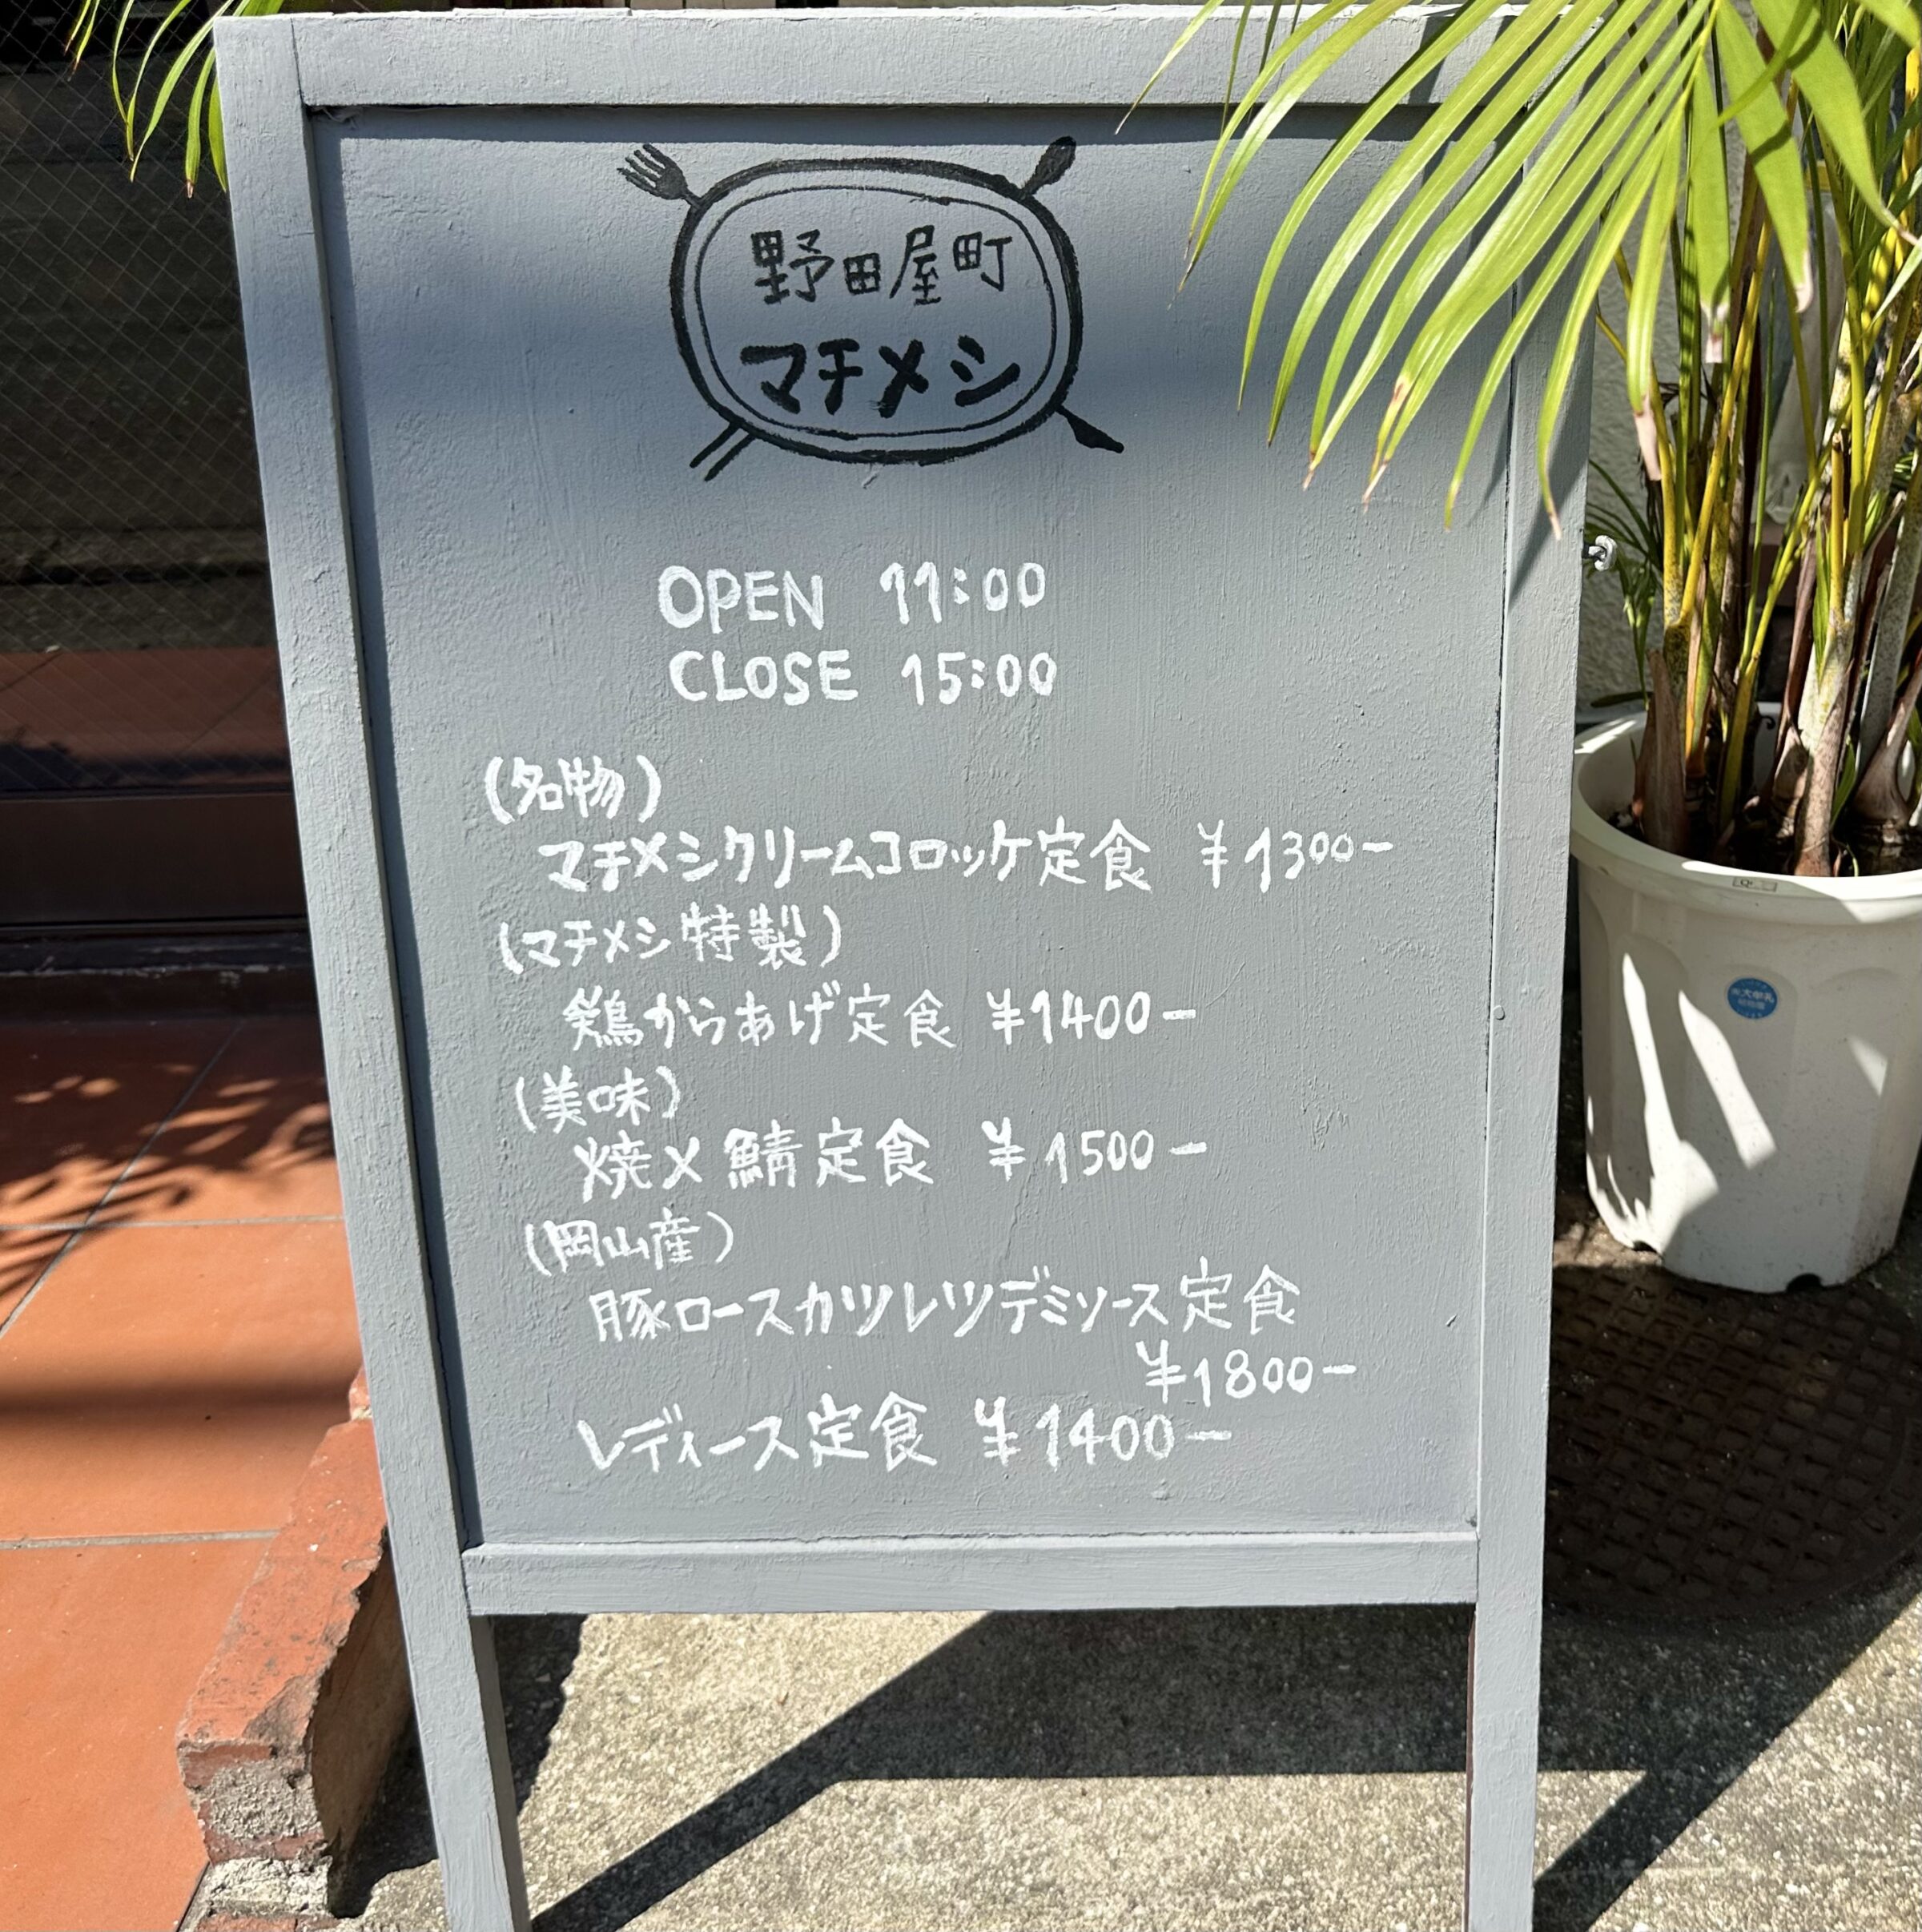 野田屋町
マチメシ
OPEN 11:00
CLOSE 15:00
(名物)
マチメシクリームコロッケ定食 ¥1300-
(マチメシ特製)
鶏からあげ定食 ¥1400-
(美味)
焼〆鯖定食 ¥1500-
(岡山産)
豚ロースカツレツデミソース定食
¥1800-
レディース定食 ¥1400-